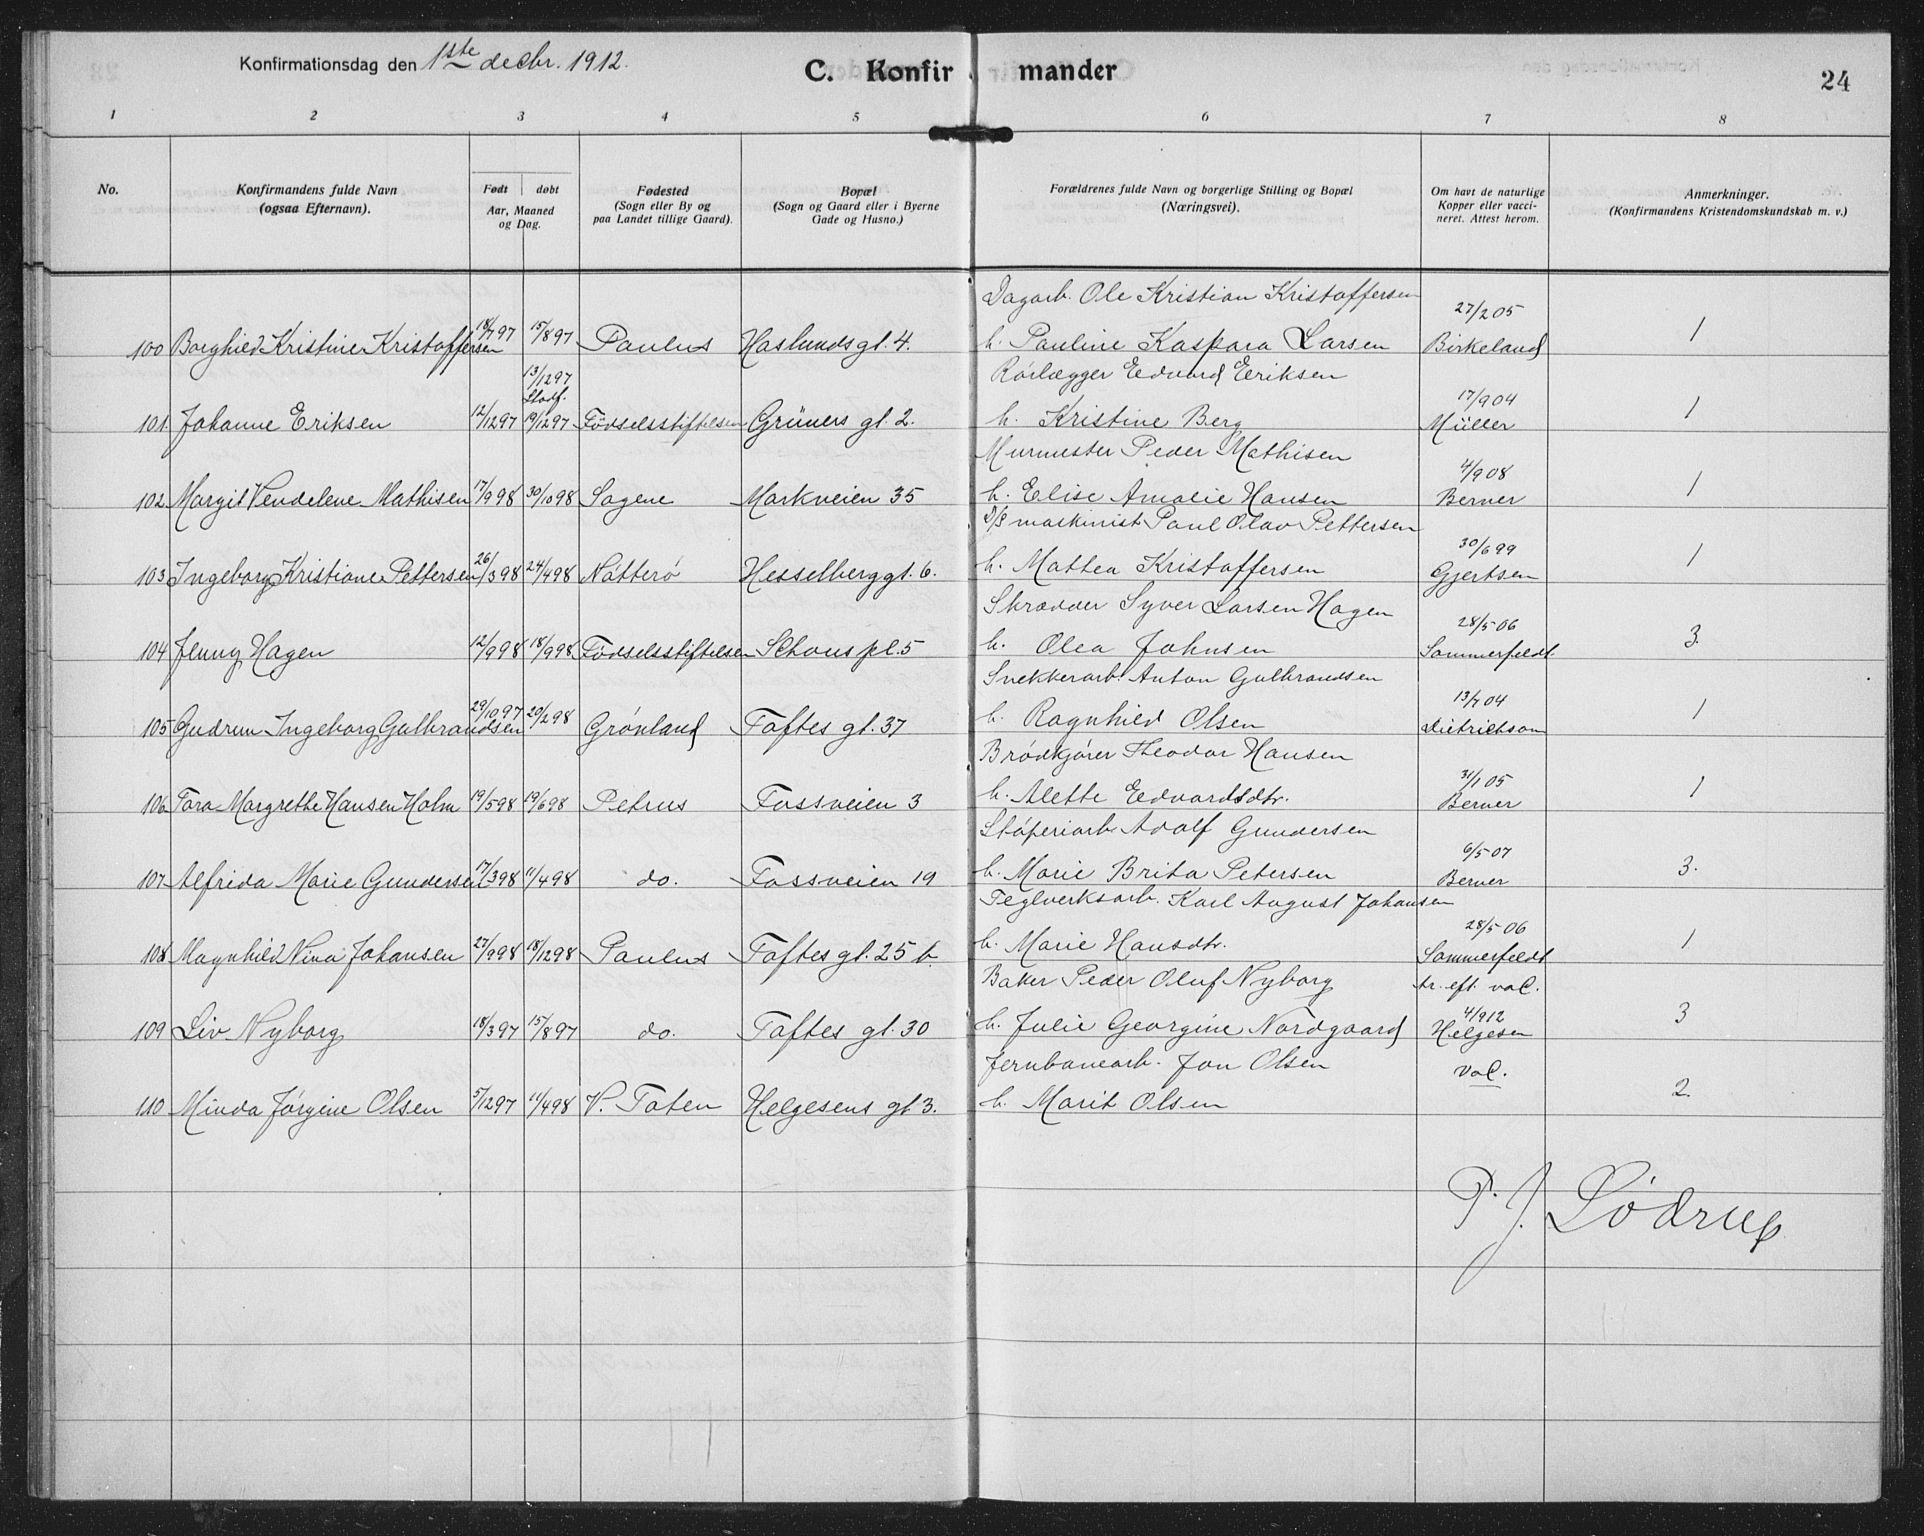 Konfirmationsdag den 1ste decbr. 1912.
C. Konfirmander
24
1 2 3 4 5 6 7 8
No.
Konfirmandens fulde Navn
(ogsaa Efternavn).
Født døbt
Aar, Maaned
og Dag.
Fødested
(Sogn eller By og
paa Landet tillige Gaard).
Bopæl
(Sogn og Gaard eller i Byerne
Gade og Husno.)
Forældrenes fulde Navn og borgerlige Stilling og Bopæl
(Næringsvei).
Om havt de naturlige
Kopper eller vacci-
neret. Attest herom.
Anmerkninger.
(Konfirmandens Kristendomskundskab m. v.)
Dagarb. Ole Kristian Kristoffersen 27/2 05
100 Borghild Kristine Kristoffersen 18/7 97 15/8 97 Paulus Haslunds gt. 4. h. Pauline Kaspara Larsen Birkeland 1
13/12 97 Rörlægger Edvard Eriksen
Stadf. 17/9 04
101 Johanne Eriksen 12/12 97 19/12 97 Födselsstiftelsen Grüners gt. 2. h. Kristine Berg Müller 1
Murmester Peder Mathisen 4/9 08
102 Margit Vendelene Mathisen 17/9 98 30/10 98 Sagene Markveien 35 h. Elise Amalie Hansen Berner 1
D/S maskinist Paul Olav Pettersen 30/6 99
103 Ingeborg Kristiane Pettersen 26/3 98 24/4 98 Nötterö Hesselberg gt. 6. h. Mathea Kristoffersen Gjertsen 1
Skrædder Syver Larsen Hagen 28/5 06
104 Jenny Hagen 12/9 98 18/9 98 Födselsstiftelsen Schous pl. 5 h. Olea Johnsen Sommerfeldt. 3.
Snekkerarb. Anton Gulbrandsen 13/7 04
105 Gudrun Ingeborg Gulbrandsen 29/10 97 20/2 98 Grönland Toftes gt. 37 h. Ragnhild Olsen Dietrichson 1
Brödkjörer Theodor Hansen 31/1 05
106 Tora Margrethe Hansen Holm 19/5 98 19/6 98 Petrus Fossveien 3 h. Alette Edvardsdtr. Berner 1
Stöperiarb. Adolf Gundersen 6/5 07
107 Alfrida Marie Gundersen 17/3 98 11/4 98 do. Fossveien 19 h. Marie Brita Petersen Berner 3.
Teglverksarb. Karl August Johansen 28/5 06
108 Magnhild Nina Johansen 27/9 98 18/12 98 Paulus Toftes gt. 25 b. h. Marie Hansdtr. Sommerfeldt 1
Baker Peder Oluf Nyborg tr. eft. vac.
4/9 12
109 Liv Nyborg 18/3 97 15/8 97 do. Toftes gt. 30 h. Julie Georgine Nordgaard Helgesen 3
Jernbanearb. Jon Olsen vac.
110 Minda Jörgine Olsen 5/12 97 11/4 98 V. Toten Helgesens gt 3. h. Marit Olsen 2.
P. J. Lödrup